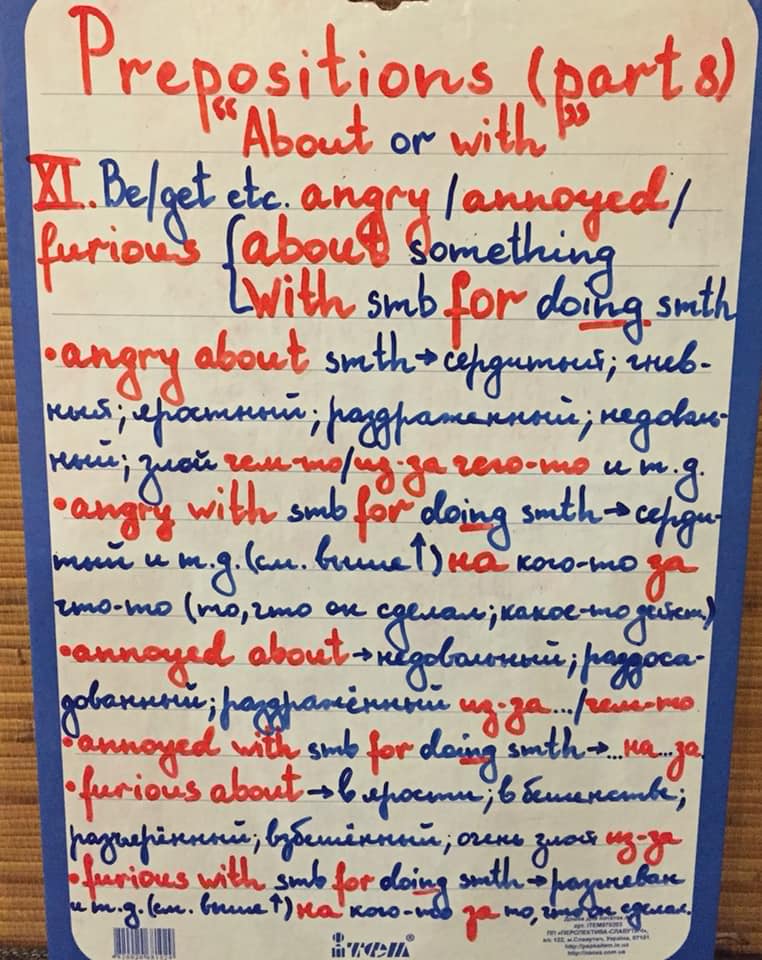 Prepositions (part 8)
"About or with"
XI. Be/get etc. angry/annoyed/
furious {about something
with smb for doing smth
• angry about smth→сердитый; гнев-
ный; яростный; раздраженный; недоволь-
ный; злой чем-то/из-за чего-то и т.д.
• angry with smb for doing smth→серди-
тый и т.д. (см. выше↑) на кого-то за
что-то (то, что он сделал; какое-то дейст)
• annoyed about→недовольный; раздоса-
дованный; раздражённый из-за.../чем-то
• annoyed with smb for doing smth→...на...за
• furious about→в ярости; в бешенстве;
разъярённый; взбешённый; очень злой из-за
• furious with smb for doing smth→разгневан
и т.д. (см. выше↑) на кого-то за то, что он сделал.
ітем®
арт. ITEM979203
ПП «ПЕРСПЕКТИВА-СЛАВУТИЧ»,
а/с 122, м.Славутич, Україна, 07101.
http://papkaitem.in.ua